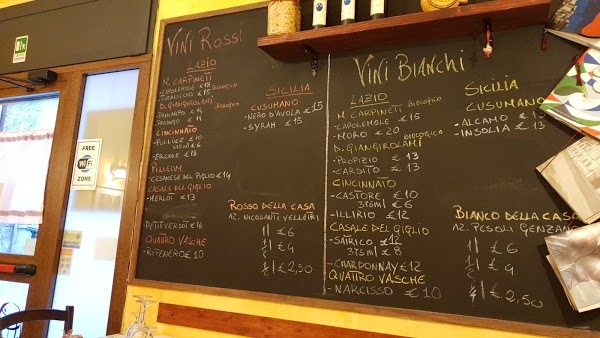 FREE
WiFi
ZONE
VINI ROSSI
LAZIO
M. CARPINETI
- CAPOLEMOLE € 15
BIOLOGICO
€ 15
D. GIANGIROLAMI
BIOLOGICO
€ 15
- PRODIGO € 14
CINCINNATO
- POLLUCE € 10
375ml € 6
- ERCOLE € 13
PILEUM
CESANESE DEL PIGLIO €14
CASALE DEL GIGLIO
- MERLOT € 13
- PETIT VERDOT €16
QUATTRO VASCHE
€ 10
SICILIA
CUSUMANO
- NERO D'AVOLA € 15
- SYRAH € 15
ROSSO DELLA CASA
AZ. NICOSANTI VELLETRI
1 l € 6
€ 4
€ 2,50
VINI BIANCHI
LAZIO
M. CARPINETI BIOLOGICO
- CAPOLEMOLE € 15
- MORO € 20
BIOLOGICO
D. GIANGIROLAMI
- PROPIZIO € 13
- CARDITO € 13
CINCINNATO
- CASTORE € 10
375ml € 6
- ILLIRIO € 12
CASALE DEL GIGLIO
- SATRICO € 12
375ml € 8
- CHARDONNAY € 12
QUATTRO VASCHE
- NARCISSO € 10
SICILIA
CUSUMANO
- ALCAMO € 13
- INSOLIA € 13
BIANCO DELLA CASA
AZ. PESOLI GENZANO
1 l € 6
€ 4
€ 2,50